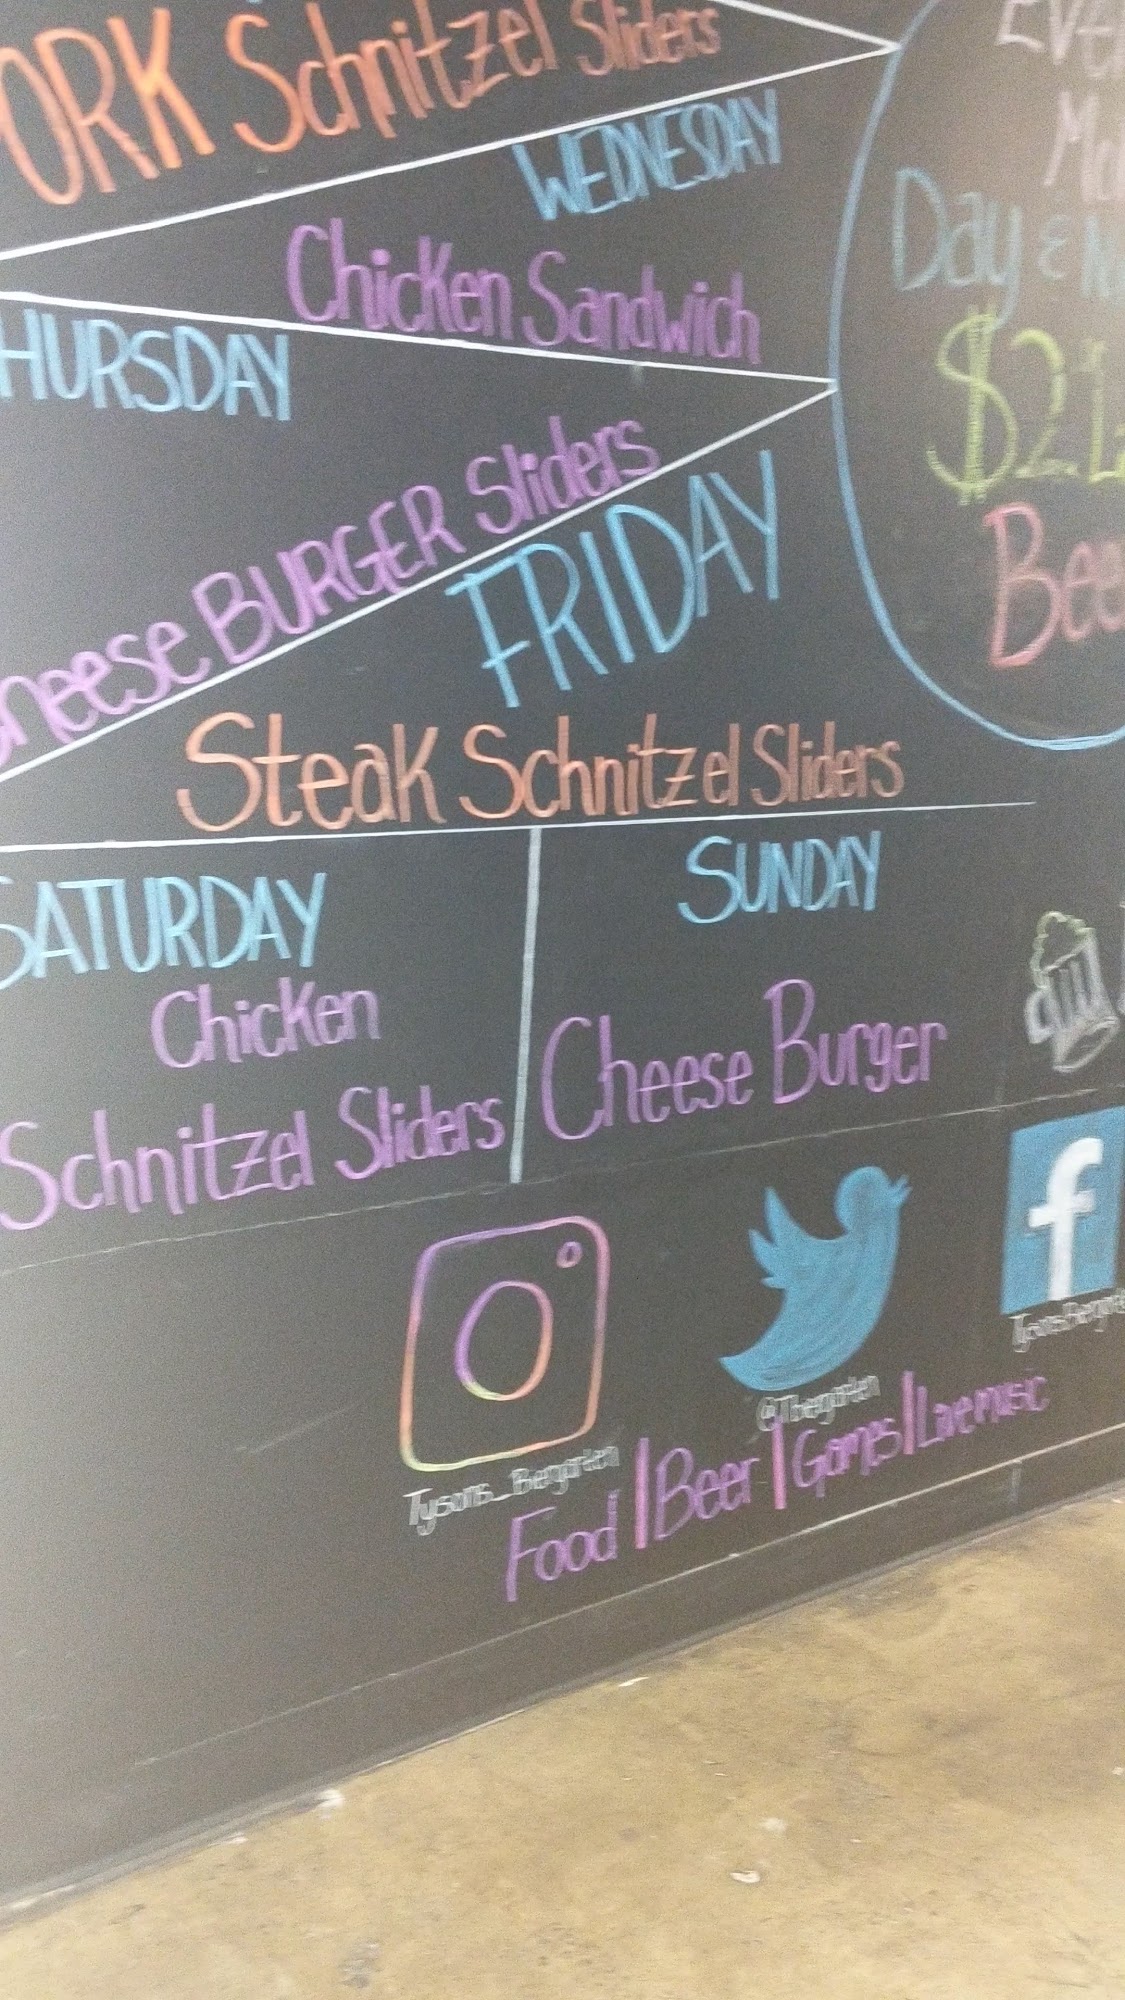 ORK Schnitzel Sliders
WEDNESDAY
Chicken Sandwich
HURSDAY
heese BURGER Sliders
FRIDAY
Steak Schnitzel Sliders
SATURDAY
Chicken
Schnitzel Sliders
SUNDAY
Cheese Burger
Day &
$2
Bee
f
Tysons_Biergarten
@Tbiergarten
Food | Beer | Games | Live music